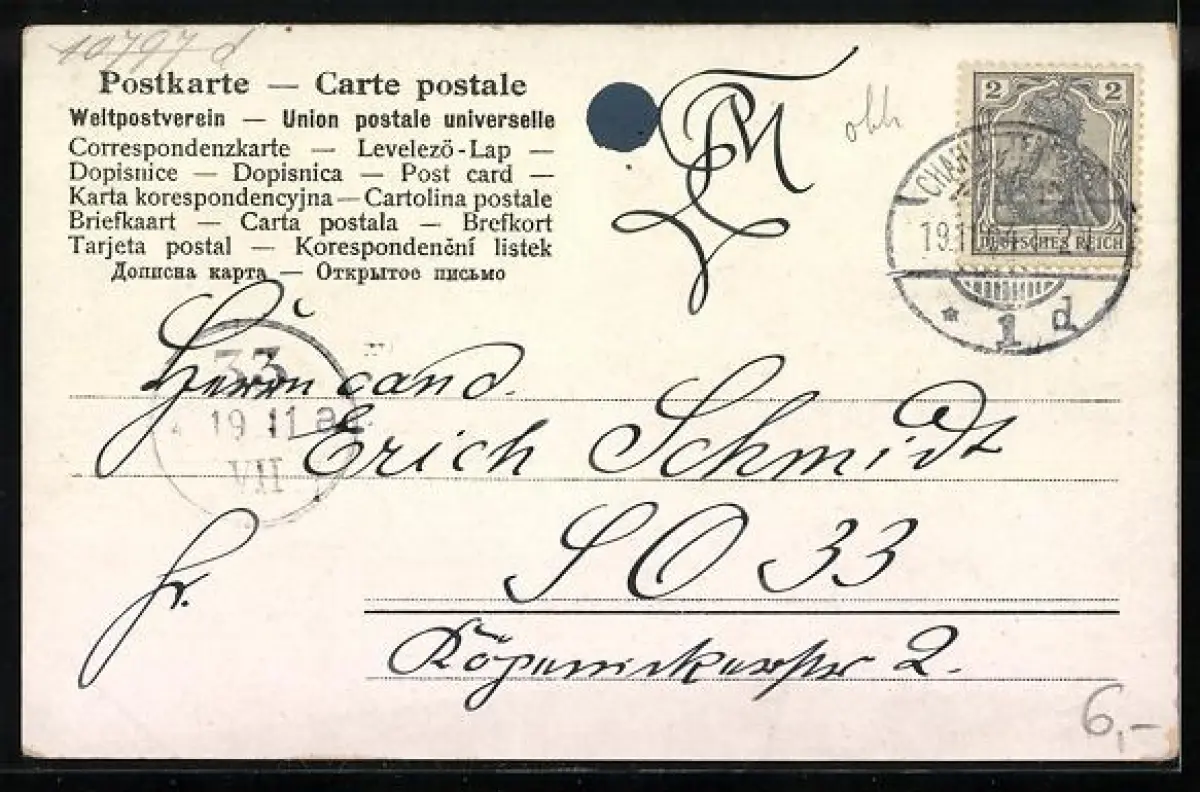 10797 d
Postkarte — Carte postale
Weltpostverein — Union postale universelle
Correspondenzkarte — Levelezö-Lap —
Dopisnice — Dopisnica — Post card —
Karta korespondencyjna — Cartolina postale
Briefkaart — Carta postala — Brefkort
Tarjeta postal — Korespondenční listek
Дописна карта — Открытое письмо
2 2
DEUTSCHES REICH
* 1 d
33
19 11
VII
Herrn cand.
Erich Schmidt
Fr.
SO 33
Köpenickerstr 2.
6,-